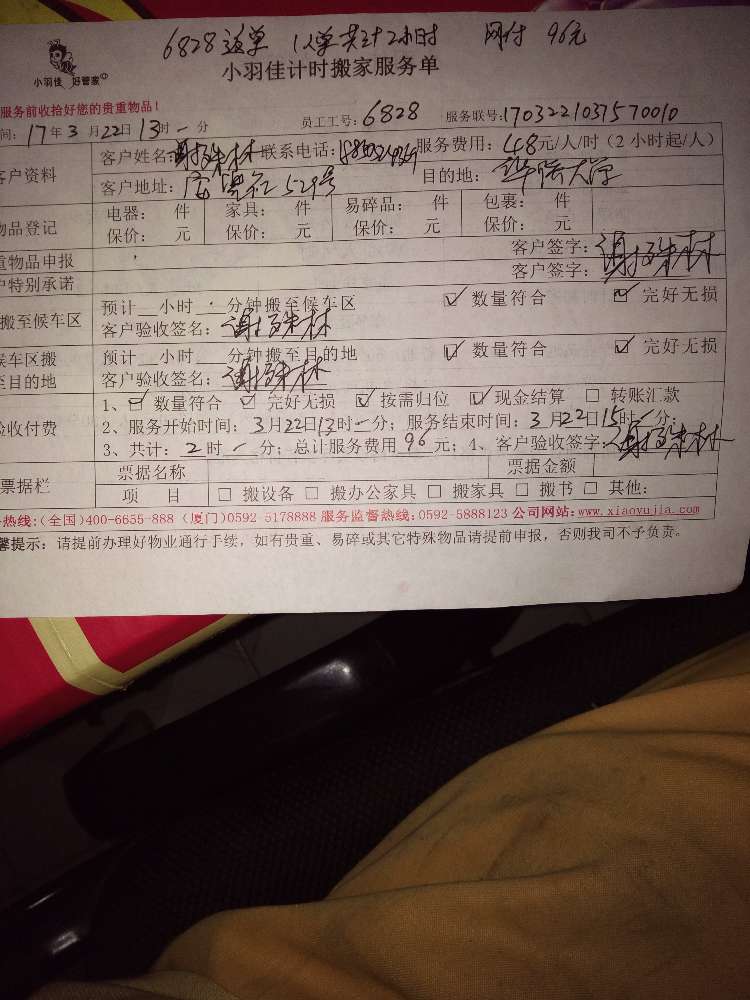 6828 这单 1人单共计2小时 网付 96元
小羽佳 好管家
小羽佳计时搬家服务单
服务前收拾好您的贵重物品！
间：17年3月22日13时-分 员工工号：6828 服务联号：1703221037570010
客户资料 客户姓名： 联系电话： 服务费用：48元/人/时（2小时起/人）
客户地址： 529号 目的地：华侨大学
物品登记 电器： 件 家具： 件 易碎品： 件 包裹： 件
保价： 元 保价： 元 保价： 元 保价： 元
重物品申报 客户签字：
户特别承诺 客户签字：
搬至候车区 预计 小时 分钟搬至候车区 数量符合 完好无损
客户验收签名：
候车区搬 预计 小时 分钟搬至目的地 数量符合 完好无损
至目的地 客户验收签名：
验收付费 1、 数量符合 完好无损 按需归位 现金结算 转账汇款
2、服务开始时间：3月22日13时-分；服务结束时间：3月22日15时-分；
3、共计：2时-分；总计服务费用 96 元；4、客户验收签字：
票据栏 票据名称 票据金额
项 目 搬设备 搬办公家具 搬家具 搬书 其他：
热线：(全国)400-6655-888 (厦门)0592-5178888 服务监督热线：0592-5888123 公司网站：www.xiaoyujia.com
馨提示：请提前办理好物业通行手续，如有贵重、易碎或其它特殊物品请提前申报，否则我司不予负责。